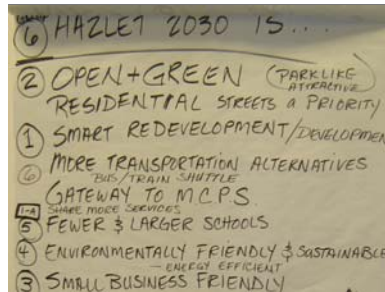 GROUP 6 HAZLET 2030 IS....
2 OPEN + GREEN (PARKLIKE
ATTRACTIVE)
RESIDENTIAL STREETS a PRIORITY
1 SMART REDEVELOPMENT/DEVELOPMEN
6 MORE TRANSPORTATION ALTERNATIVES
BUS/TRAIN SHUTTLE
GATEWAY TO M.C.P.S.
1-A SHARE MORE SERVICES
5 FEWER & LARGER SCHOOLS
4 ENVIRONMENTALLY FRIENDLY & SUSTAINABLE
- ENERGY EFFICIENT
3 SMALL BUSINESS FRIENDLY